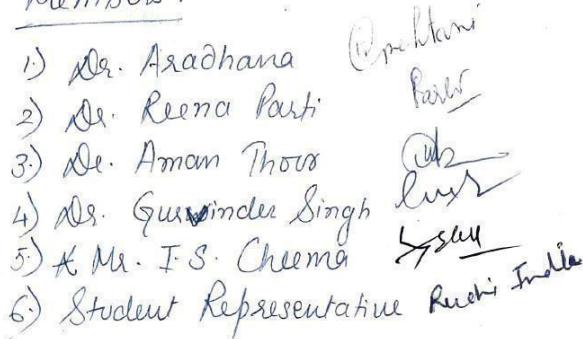 Members:
1.) Dr. Aradhana
2) Dr. Reena Parti Parti
3.) Dr. Aman Thoor
4) Dr. Gurwinder Singh
5.) Mr. I.S. Cheema
6.) Student Representative Ruchi India